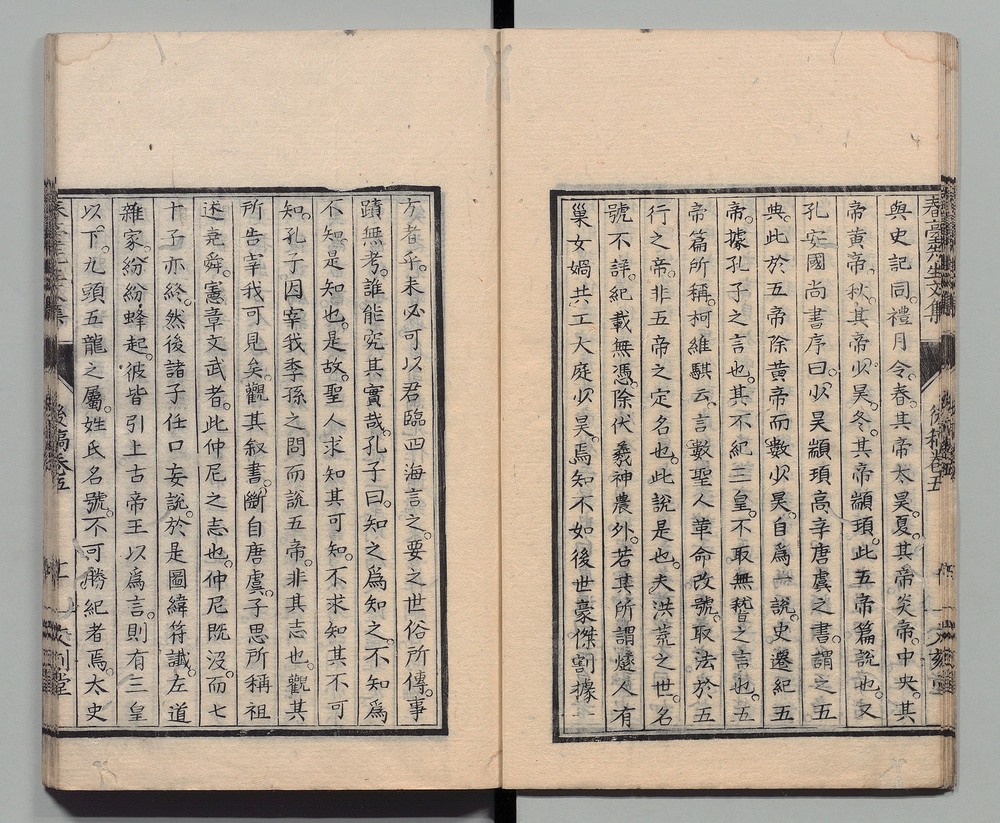 與史記同禮月令春其帝太昊夏其帝炎帝中央其
帝黃帝秋其帝少昊冬其帝顓頊此五帝篇說也又
孔安國尚書序曰少昊顓頊高辛唐虞之書謂之五
典此於五帝除黃帝而數少昊自爲一說史遷紀五
帝據孔子之言也其不紀三皇不取無稽之言也五
帝篇所稱柯維騏云言數聖人革命改號取法於五
行之帝非五帝之定名也此說是也夫洪荒之世名
號不詳紀載無憑除伏羲神農外若其所謂燧人有
巢女媧共工大庭少昊焉知不如後世豪傑割據一
方者乎未必可以君臨四海言之要之世俗所傳事
蹟無考誰能究其實哉孔子曰知之爲知之不知爲
不知是知也是故聖人求知其可知不求知其不可
知孔子因宰我季孫之問而說五帝非其志也觀其
所告宰我可見矣觀其叙書斷自唐虞子思所稱祖
述堯舜憲章文武者此仲尼之志也仲尼既沒而七
十子亦終然後諸子任口妄說於是圖緯符讖左道
雜家紛紛蜂起彼皆引上古帝王以爲言則有三皇
以下九頭五龍之屬姓氏名號不可勝紀者焉太史
後稿卷五